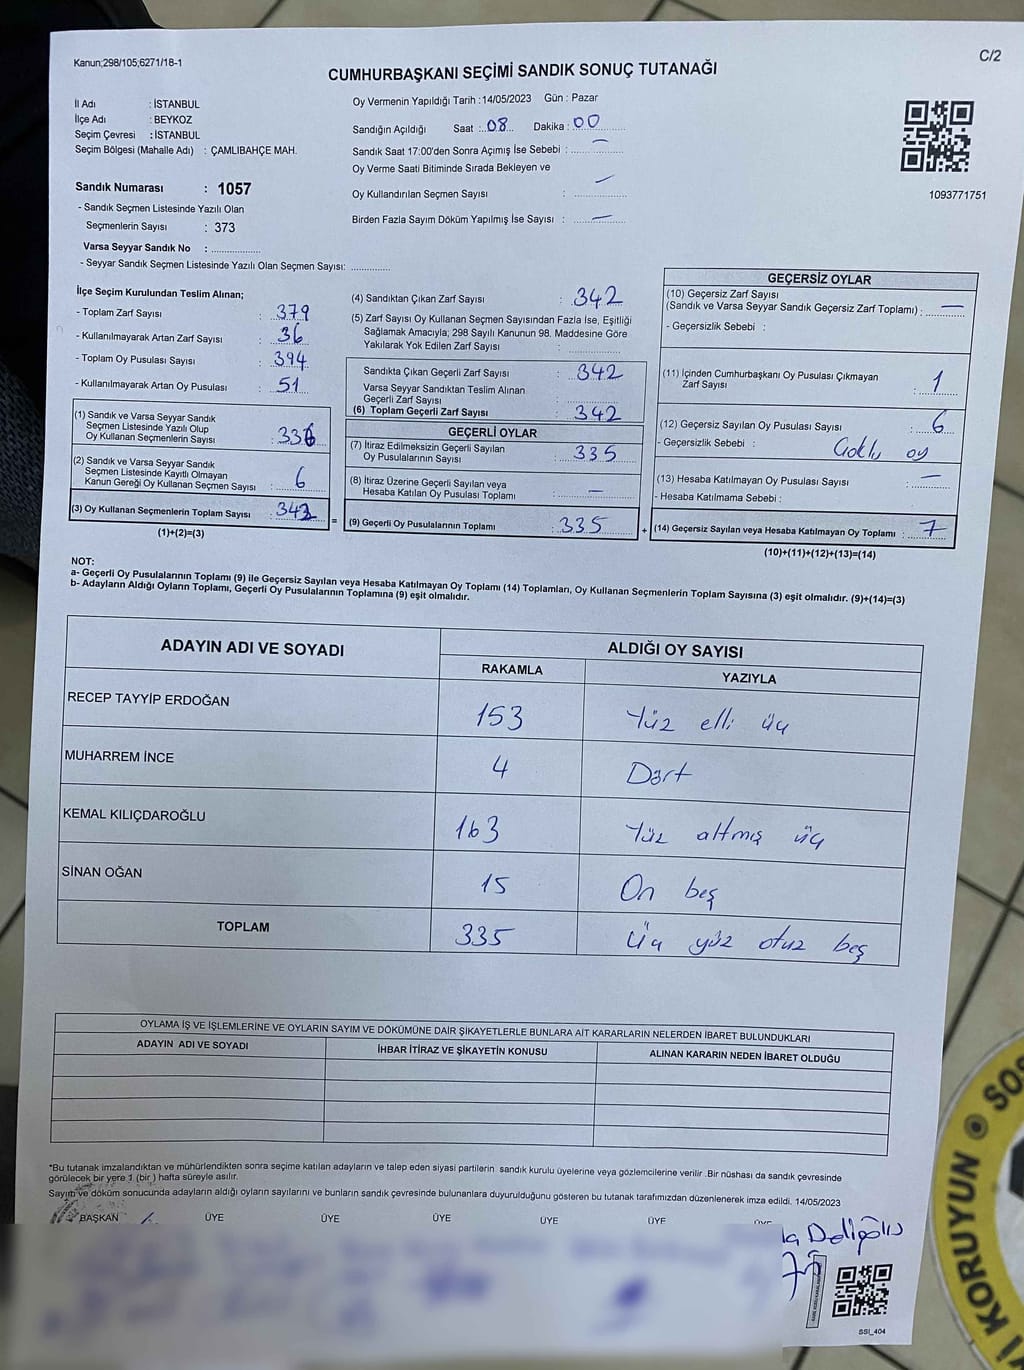 Kanun;298/105;6271/18-1
C/2
CUMHURBAŞKANI SEÇİMİ SANDIK SONUÇ TUTANAĞI
İl Adı : İSTANBUL
İlçe Adı : BEYKOZ
Seçim Çevresi : İSTANBUL
Seçim Bölgesi (Mahalle Adı) : ÇAMLIBAHÇE MAH.
Sandık Numarası : 1057
- Sandık Seçmen Listesinde Yazılı Olan
Seçmenlerin Sayısı : 373
Varsa Seyyar Sandık No : ....................
- Seyyar Sandık Seçmen Listesinde Yazılı Olan Seçmen Sayısı: ..............
Oy Vermenin Yapıldığı Tarih :14/05/2023 Gün : Pazar
Sandığın Açıldığı Saat : 08 Dakika : 00
Sandık Saat 17:00'den Sonra Açımış İse Sebebi : —
Oy Verme Saati Bitiminde Sırada Bekleyen ve
Oy Kullandırılan Seçmen Sayısı : —
Birden Fazla Sayım Döküm Yapılmış İse Sayısı : —
1093771751
İlçe Seçim Kurulundan Teslim Alınan;
- Toplam Zarf Sayısı : 379
- Kullanılmayarak Artan Zarf Sayısı : 36
- Toplam Oy Pusulası Sayısı : 394
- Kullanılmayarak Artan Oy Pusulası : 51
(1) Sandık ve Varsa Seyyar Sandık
Seçmen Listesinde Yazılı Olup
Oy Kullanan Seçmenlerin Sayısı : 336
(2) Sandık ve Varsa Seyyar Sandık
Seçmen Listesinde Kayıtlı Olmayan
Kanun Gereği Oy Kullanan Seçmen Sayısı : 6
(3) Oy Kullanan Seçmenlerin Toplam Sayısı : 342
(1)+(2)=(3)
(4) Sandıktan Çıkan Zarf Sayısı : 342
(5) Zarf Sayısı Oy Kullanan Seçmen Sayısından Fazla İse, Eşitliği
Sağlamak Amacıyla; 298 Sayılı Kanunun 98. Maddesine Göre
Yakılarak Yok Edilen Zarf Sayısı : ..............
Sandıkta Çıkan Geçerli Zarf Sayısı : 342
Varsa Seyyar Sandıktan Teslim Alınan
Geçerli Zarf Sayısı : ..............
(6) Toplam Geçerli Zarf Sayısı : 342
GEÇERLİ OYLAR
(7) İtiraz Edilmeksizin Geçerli Sayılan
Oy Pusulalarının Sayısı : 335
(8) İtiraz Üzerine Geçerli Sayılan veya
Hesaba Katılan Oy Pusulası Toplamı : —
= (9) Geçerli Oy Pusulalarının Toplamı : 335
GEÇERSİZ OYLAR
(10) Geçersiz Zarf Sayısı
(Sandık ve Varsa Seyyar Sandık Geçersiz Zarf Toplamı) : —
- Geçersizlik Sebebi :
(11) İçinden Cumhurbaşkanı Oy Pusulası Çıkmayan
Zarf Sayısı : 1
(12) Geçersiz Sayılan Oy Pusulası Sayısı : 6
- Geçersizlik Sebebi : Çoklu oy
(13) Hesaba Katılmayan Oy Pusulası Sayısı : —
- Hesaba Katılmama Sebebi :
+ (14) Geçersiz Sayılan veya Hesaba Katılmayan Oy Toplamı : 7
(10)+(11)+(12)+(13)=(14)
NOT:
a- Geçerli Oy Pusulalarının Toplamı (9) ile Geçersiz Sayılan veya Hesaba Katılmayan Oy Toplamı (14) Toplamları, Oy Kullanan Seçmenlerin Toplam Sayısına (3) eşit olmalıdır. (9)+(14)=(3)
b- Adayların Aldığı Oyların Toplamı, Geçerli Oy Pusulalarının Toplamına (9) eşit olmalıdır.
ADAYIN ADI VE SOYADI ALDIĞI OY SAYISI
RAKAMLA YAZIYLA
RECEP TAYYİP ERDOĞAN 153 Yüz elli üç
MUHARREM İNCE 4 Dört
KEMAL KILIÇDAROĞLU 163 Yüz altmış üç
SİNAN OĞAN 15 On beş
TOPLAM 335 Üç yüz otuz beş
OYLAMA İŞ VE İŞLEMLERİNE VE OYLARIN SAYIM VE DÖKÜMÜNE DAİR ŞİKAYETLERLE BUNLARA AİT KARARLARIN NELERDEN İBARET BULUNDUKLARI
ADAYIN ADI VE SOYADI İHBAR İTİRAZ VE ŞİKAYETİN KONUSU ALINAN KARARIN NEDEN İBARET OLDUĞU
*Bu tutanak imzalandıktan ve mühürlendikten sonra seçime katılan adayların ve talep eden siyasi partilerin sandık kurulu üyelerine veya gözlemcilerine verilir .Bir nüshası da sandık çevresinde
görülecek bir yere 1 (bir ) hafta süreyle asılır.
Sayım ve döküm sonucunda adayların aldığı oyların sayılarını ve bunların sandık çevresinde bulunanlara duyurulduğunu gösteren bu tutanak tarafımızdan düzenlenerek imza edildi. 14/05/2023
BAŞKAN ÜYE ÜYE ÜYE ÜYE ÜYE ÜYE
SSI_404
KORUYUN